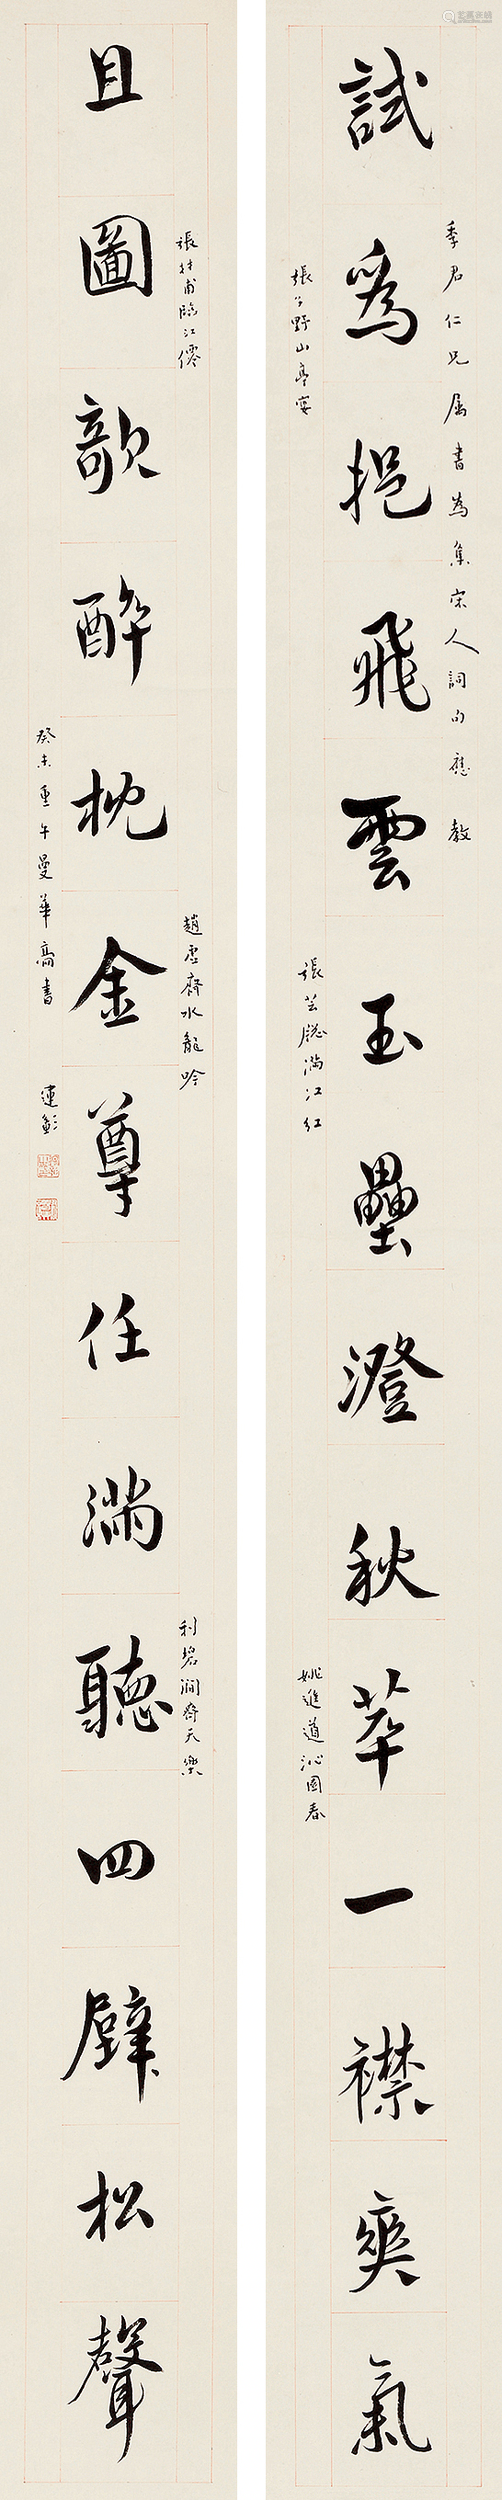 季君仁兄属書為集宋人詞句應教
試為挹飛雲玉壘澄秋萃一襟爽氣
張于野山亭宴
張芸窗滿江紅
姚進道沁園春
張材甫臨江僊
趙虛齋水龍吟
利碧澗齊天樂
且圖歌醉枕金尊任滿聽四壁松聲
癸未重午曼華高書
運彰